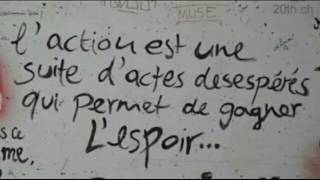 MUSE
20th.ch
l'action est une
suite d'actes desespérés
qui permet de gagner
L'espoir...
me,